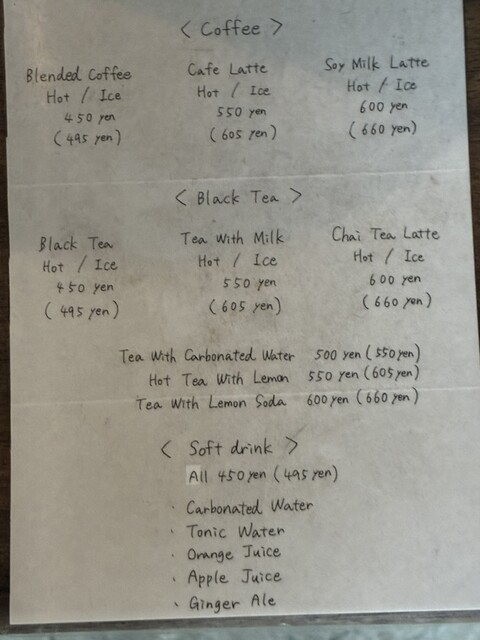 < Coffee >
Blended Coffee
Hot / Ice
450 yen
(495 yen)
Cafe Latte
Hot / Ice
550 yen
(605 yen)
Soy Milk Latte
Hot / Ice
600 yen
(660 yen)
< Black Tea >
Black Tea
Hot / Ice
450 yen
(495 yen)
Tea With Milk
Hot / Ice
550 yen
(605 yen)
Chai Tea Latte
Hot / Ice
600 yen
(660 yen)
Tea With Carbonated Water 500 yen (550 yen)
Hot Tea With Lemon 550 yen (605 yen)
Tea With Lemon Soda 600 yen (660 yen)
< Soft drink >
All 450 yen (495 yen)
· Carbonated Water
· Tonic Water
· Orange Juice
· Apple Juice
· Ginger Ale